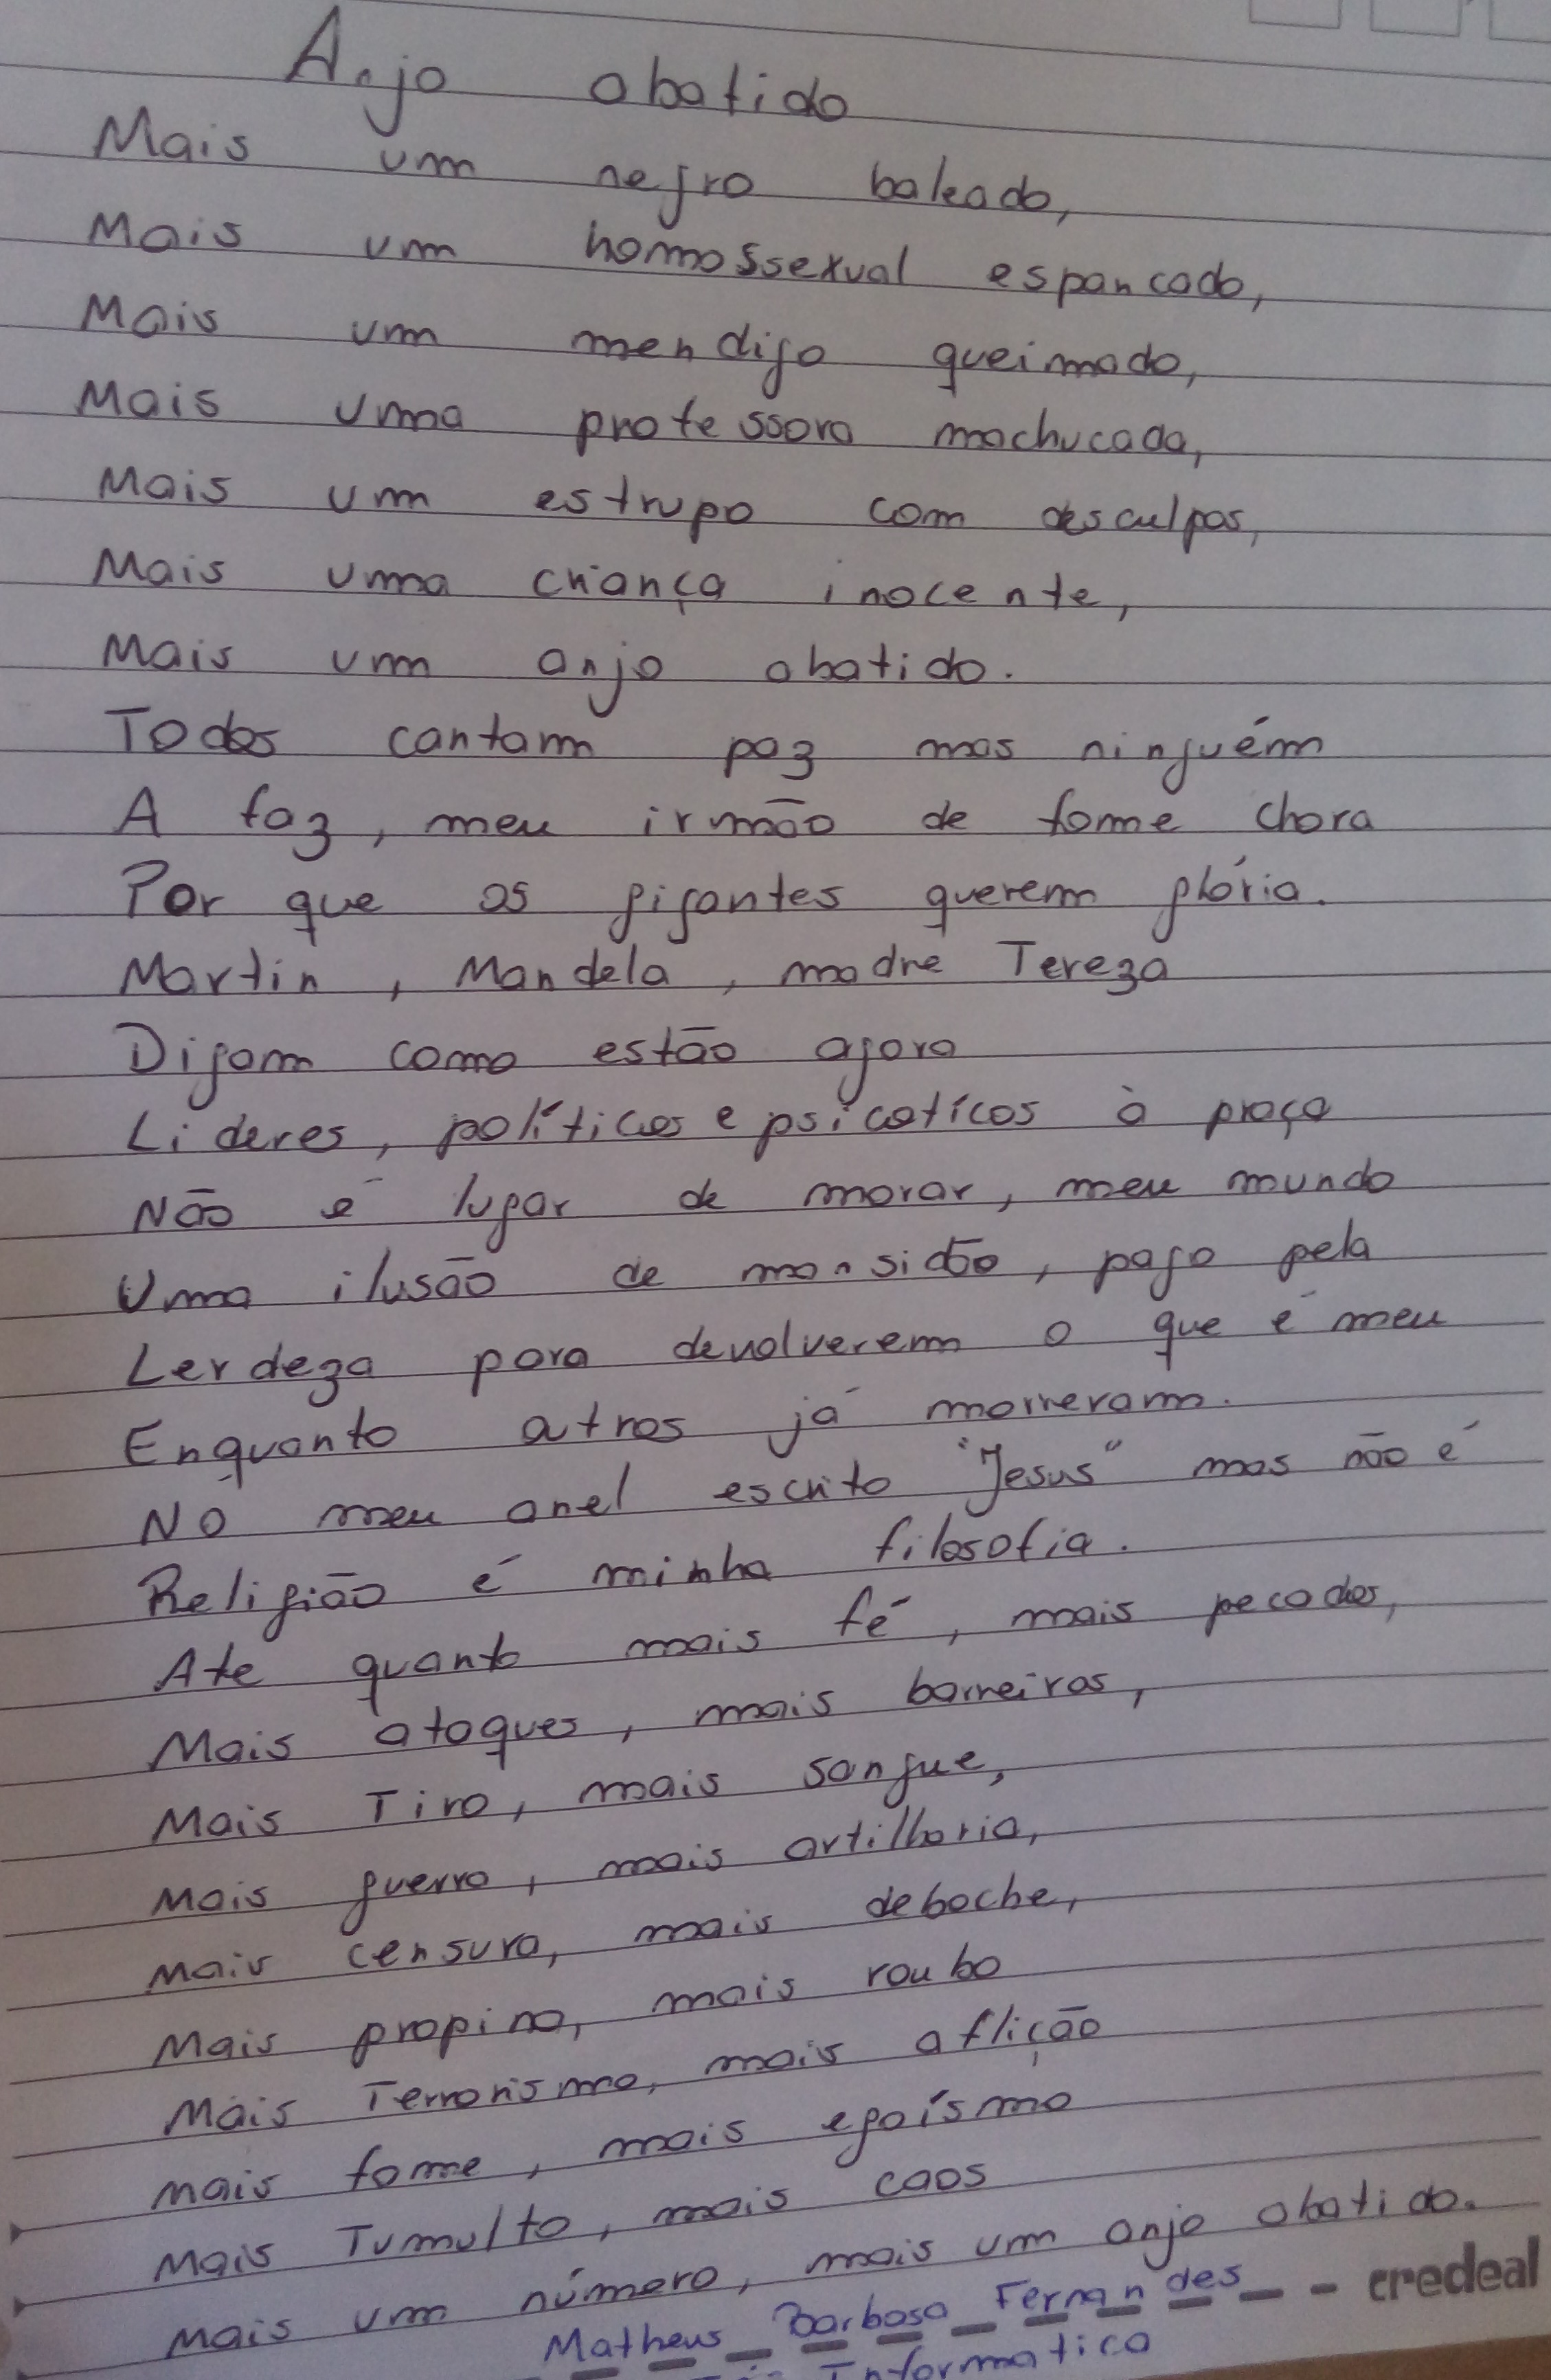 Anjo abatido
Mais um negro baleado,
Mais um homossexual espancado,
Mais um mendigo queimado,
Mais uma professora machucada,
Mais um estrupo com desculpas,
Mais uma criança inocente,
Mais um anjo abatido.
Todos cantam paz mas ninguém
A faz, meu irmão de fome chora
Por que os gigantes querem glória.
Martin, Mandela, madre Tereza
Digam como estão agora
Lideres, políticos e psicoticos à praça
Não é lugar de morar, meu mundo
Uma ilusão de mansidão, pago pela
Lerdeza para devolverem o que é meu
Enquanto otros já morreram.
No meu anel escrito "Jesus" mas não é
Religião é minha filosofia.
Ate quanto mais fé, mais pecados,
Mais ataques, mais barreiras,
Mais Tiro, mais sangue,
Mais guerra, mais artilharia,
Mais censura, mais deboche,
Mais propina, mais roubo
Mais Terrorismo, mais aflição
Mais fome, mais egoísmo
Mais Tumulto, mais caos
Mais um número, mais um anjo abatido.
Matheus Barbosa Fernandes credeal
Informatica